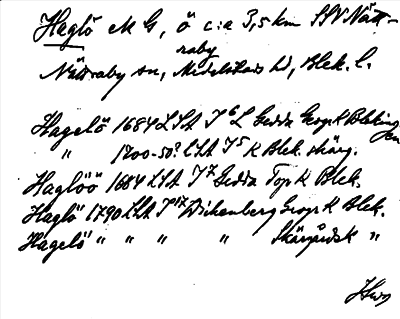 Haglö M G, ö c:a 3,5 km SSV Nätt-
raby
Nättraby sn, Medelstads hd, Blek. l.
Hagelö 1684 LSA J⁶ L Gedda Geogr K Blekinge
" 1700-50? LSA J⁵ K Blek. skärg.
Haglöö 1684 LSA J⁷ Gedda Top K Blek.
Haglö 1790 LSA J¹² Wihenberg Geogr K Blek.
Hagelö " " " " Skärgårdsk "